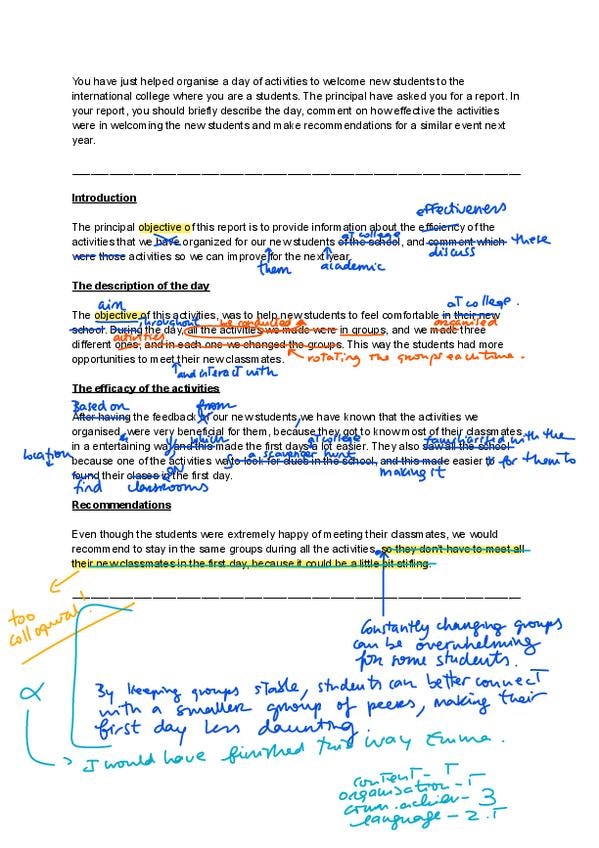 You have just helped organise a day of activities to welcome new students to the
international college where you are a students. The principal have asked you for a report. In
your report, you should briefly describe the day, comment on how effective the activities
were in welcoming the new students and make recommendations for a similar event next
year.
Introduction
effectiveness
The principal objective of this report is to provide information about the efficiency of the
at college
activities that we have organized for our new students of the school, and comment which these
were those activities so we can improve for the next year.
them academic discuss
The description of the day
aim at college.
The objective of this activities, was to help new students to feel comfortable in their new
throughout we conducted organised
school. During the day, all the activities we made were in groups, and we made three
activities
different ones, and in each one we changed the groups. This way the students had more
rotating the groups each time.
opportunities to meet their new classmates.
and interact with
The efficacy of the activities
Based on from
After having the feedback of our new students, we have known that the activities we
organised, were very beneficial for them, because they got to know most of their classmates
which at college familiarised with the
in a entertaining way and this made the first days a lot easier. They also saw all the school
location a scavenger hunt
because one of the activities was to look for clues in the school, and this made easier to for them to
making it
found their clases in the first day.
find classrooms on
Recommendations
Even though the students were extremely happy of meeting their classmates, we would
recommend to stay in the same groups during all the activities, so they don't have to meet all
their new classmates in the first day, because it could be a little bit stifling.
too
colloquial!
Constantly changing groups
can be overwhelming
for some students.
By keeping groups stable, students can better connect
with a smaller group of peers, making their
first day less daunting.
I would have finished this way Emma.
content - T
organisation - T
comm. achiev - 3
language - 2.T